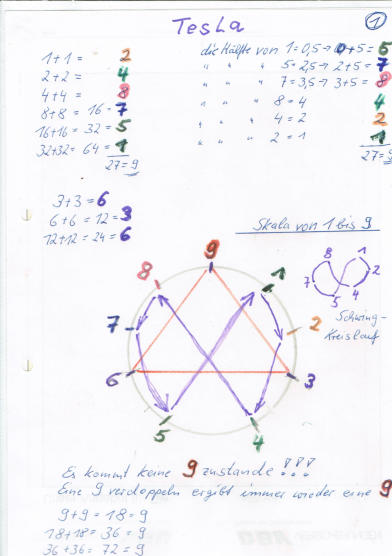 Tesla
1
1+1 = 2
2+2 = 4
4+4 = 8
8+8 = 16 = 7
16+16 = 32 = 5
32+32 = 64 = 1
27 = 9
die Hälfte von 1 = 0,5 → 0+5 = 5
" " " 5 = 2,5 → 2+5 = 7
" " " 7 = 3,5 → 3+5 = 8
" " " 8 = 4 4
" " " 4 = 2 2
" " " 2 = 1 1
27 = 9
3+3 = 6
6+6 = 12 = 3
12+12 = 24 = 6
Skala von 1 bis 9
9
8
1
7
2
6
3
5
4
8 1
7 2
5 4
Schwing-
Kreislauf
Es kommt keine 9 zustande !!!
Eine 9 verdoppeln ergibt immer wieder eine 9
9+9 = 18 = 9
18+18 = 36 = 9
36+36 = 72 = 9